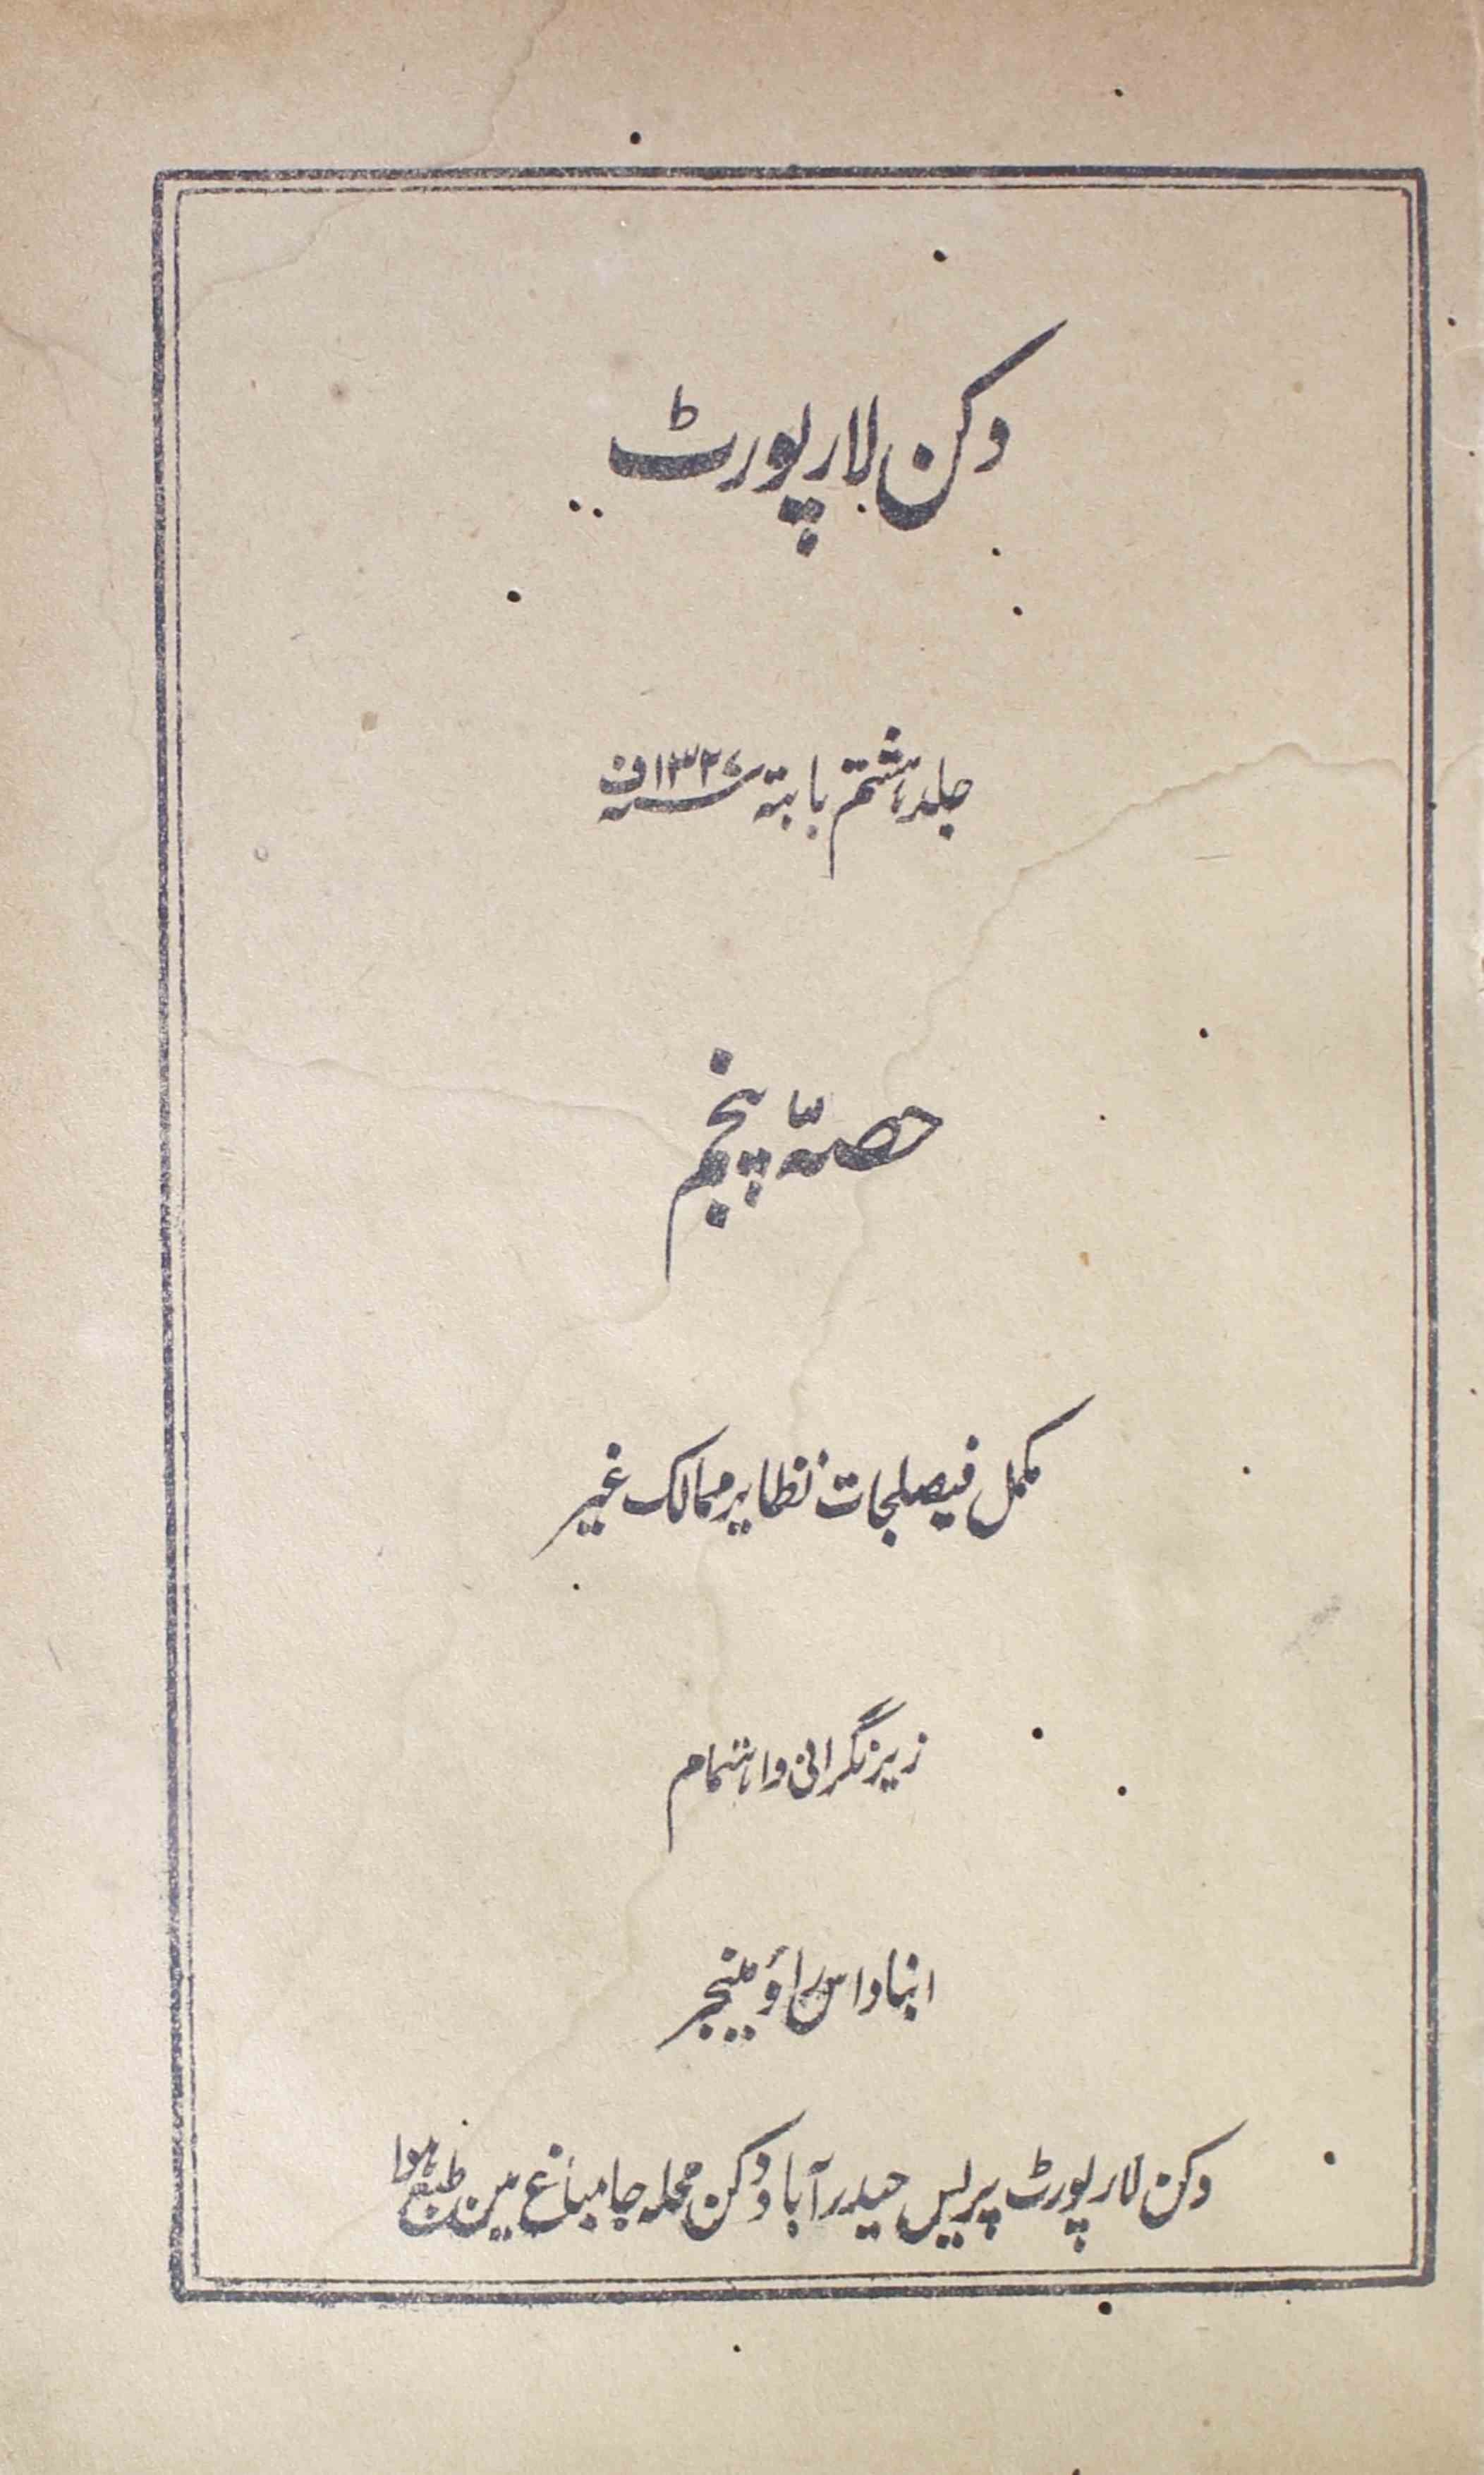 دکن لا رپورٹ
جلد ہشتم بابتہ سنہ ۱۳۲۷ ف
حصہّ پنجم
مکمل فیصلجات نظایر ممالک غیر
زیر نگرانی و اہتمام
راؤ منیجر
دکن لا رپورٹ پریس حیدرآباد دکن محلہ جامباغ مین طبع ہوا